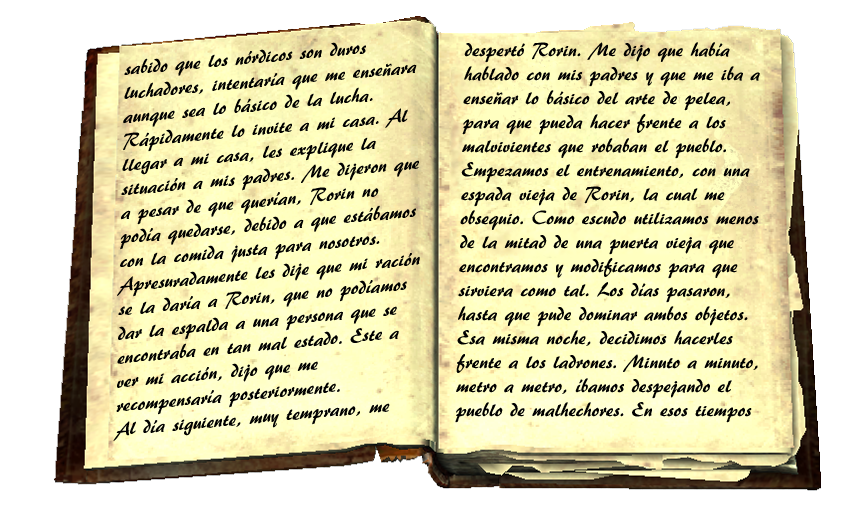 sabido que los nórdicos son duros
luchadores, intentaría que me enseñara
aunque sea lo básico de la lucha.
Rápidamente lo invite a mi casa. Al
llegar a mi casa, les explique la
situación a mis padres. Me dijeron que
a pesar de que querían, Rorin no
podía quedarse, debido a que estábamos
con la comida justa para nosotros.
Apresuradamente les dije que mi ración
se la daría a Rorin, que no podíamos
dar la espalda a una persona que se
encontraba en tan mal estado. Este a
ver mi acción, dijo que me
recompensaría posteriormente.
Al día siguiente, muy temprano, me
despertó Rorin. Me dijo que había
hablado con mis padres y que me iba a
enseñar lo básico del arte de pelea,
para que pueda hacer frente a los
malvivientes que robaban el pueblo.
Empezamos el entrenamiento, con una
espada vieja de Rorin, la cual me
obsequio. Como escudo utilizamos menos
de la mitad de una puerta vieja que
encontramos y modificamos para que
sirviera como tal. Los días pasaron,
hasta que pude dominar ambos objetos.
Esa misma noche, decidimos hacerles
frente a los ladrones. Minuto a minuto,
metro a metro, íbamos despejando el
pueblo de malhechores. En esos tiempos